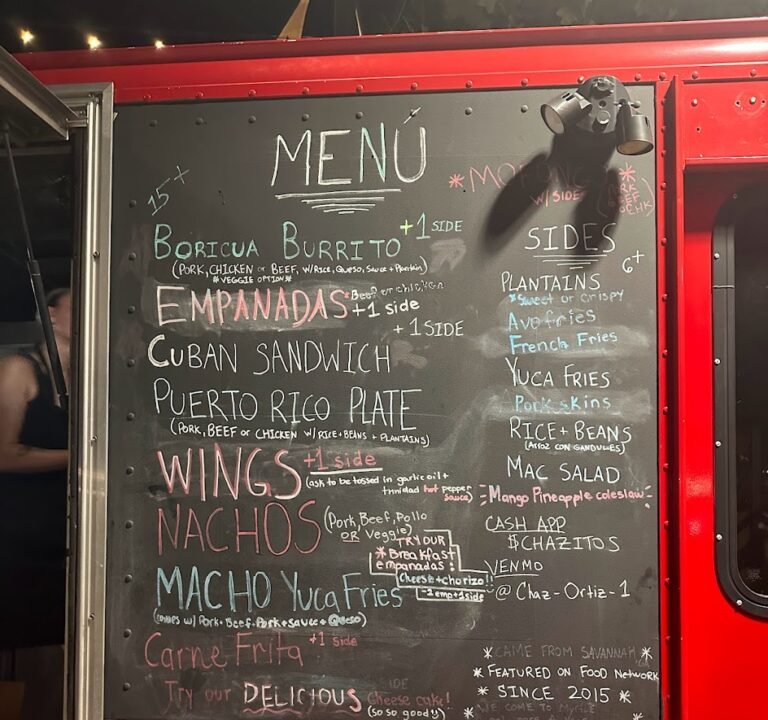 MENÚ
15+
BORICUA BURRITO +1 SIDE
(PORK, CHICKEN or BEEF, W/RICE, QUESO, SAUCE + Plantain)
*VEGGIE OPTION*
EMPANADAS *Beef or chicken
+1 side
+1 SIDE
CUBAN SANDWICH
PUERTO RICO PLATE
(PORK, BEEF or CHICKEN W/RICE+BEANS + PLANTAINS)
WINGS +1 side
(ask to be tossed in garlic oil +
trinidad hot pepper
sauce)
NACHOS (Pork, Beef, Pollo
OR Veggie)
TRY OUR
*Breakfast
empanadas:
Cheese+chorizo!!
-1 emp+1 side
MACHO Yuca Fries
(comes w/ Pork+Beef+Pork+sauce+Queso)
Carne Frita +1 side
Try our DELICIOUS Cheese cake!
(so so good!)
*MOFONGO*
W/SIDE
(PORK
BEEF
SIDES
6+
PLANTAINS
*Sweet or crispy
Avo fries
French Fries
YUCA FRIES
Pork skins
RICE+BEANS
(ARROZ CON GANDULES)
MAC SALAD
Mango Pineapple coleslaw
CASH APP
$CHAZITOS
VENMO
@Chaz-Ortiz-1
*CAME FROM SAVANNAH*
*FEATURED ON FOOD NETWORK
*SINCE 2015*
WE COME TO